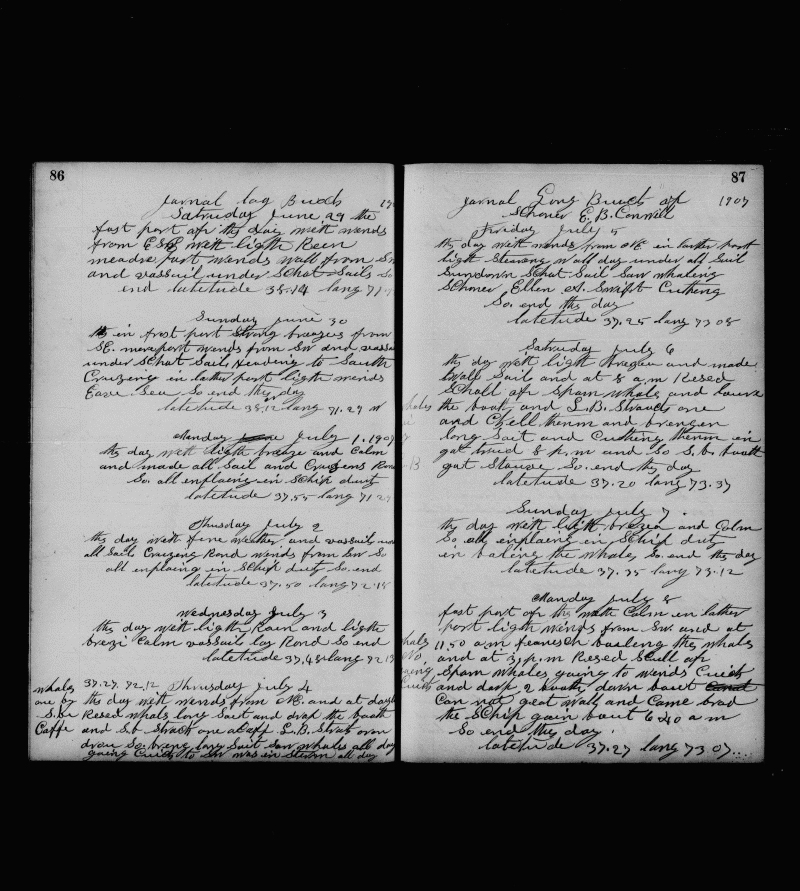 86
Jornal Log Buuch 190
Satruday June 29 the
fast port off thy day with wends
from ESE with ligth Reen
meadre port wends wall from Sw
and vassuil under Schat Sails So
end latetude 38.14 lang 71.
Sunday June 30
thy in frost port Strong breezes from
SE. mereport wends from Sw and vassu
under Schat Sail, Heading to Sauth
Cruzing in lather port ligth wends
Ease. Sea So end thy day
latetude 38.12 lang 71.29 W
Manday July 1. 1907
thy day with ligth breeze and Calm
and made all Sail and Cruzens Rond
So. all enplaing in Schip duty
latetude 37.55 lang 71.27
Thusday July 2
thy day weth fine weather and vassuil und
all Sail Cruzeng Rond wends from Sw So
all enplaing in Schip duty So. end
latetude 37.50 lang 72.18
Wednesday July 3
thy day weth ligth Rain and ligth
brezi Calm vassail lay Rond So end
latetude 37.48 lang 72.13
37.27. 72.12 Thursday July 4
whales
one by
S.B.
Caffe
thy day with wends from NE. and at dayli
Resed whals long Sait and drap the baath
and S.b Strath one Caff L.B. Strat own
drow So breng long Sait Saw whals all day
going Cuick to Sw was in Sterm all day
87
Jornal Long Buuch off 1907
Schoner E.B. Conwill
Friday July 5
thy day with wends from NE in lather port
ligth Steureng W all day under all Sail
Sundown Schat. Sail Saw whaleng
Schoner Ellen A. Swift Cutheng
So. end thy day
latetude 37.25 lang 73 08
Satruday July 6
thy day with ligth bregeu and made
wall Sail and at 8 a.m Resed
Schall off Spam whals and
the baath and L.B. Strauch one
and Chell therm and brengen
long Sait and Cutheng therm in
gat 8 p.m and So S.b. baath
gat Stause So. end thy day
latetude 37.20 lang 73.37
Sunday July 7.
thy day with ligth brezea and Calm
So all enplaing in Schip duty
in baleng the whales So. end thy day
latetude 37.35 lang 73.12
Manday July 8
fast port off thy with Calm en lather
port ligth wends from Sw. and at
11.50 a.m feanesch baaleng thy whals
and at 3 p.m Resed Scull off
Spam whales going to wends Cuick
and darp 2 baats darn baut
Can not geat wall and Came brad
the Schip gain baut 6.40 a m
So end thy day.
latetude 37.27 lang 73 07.